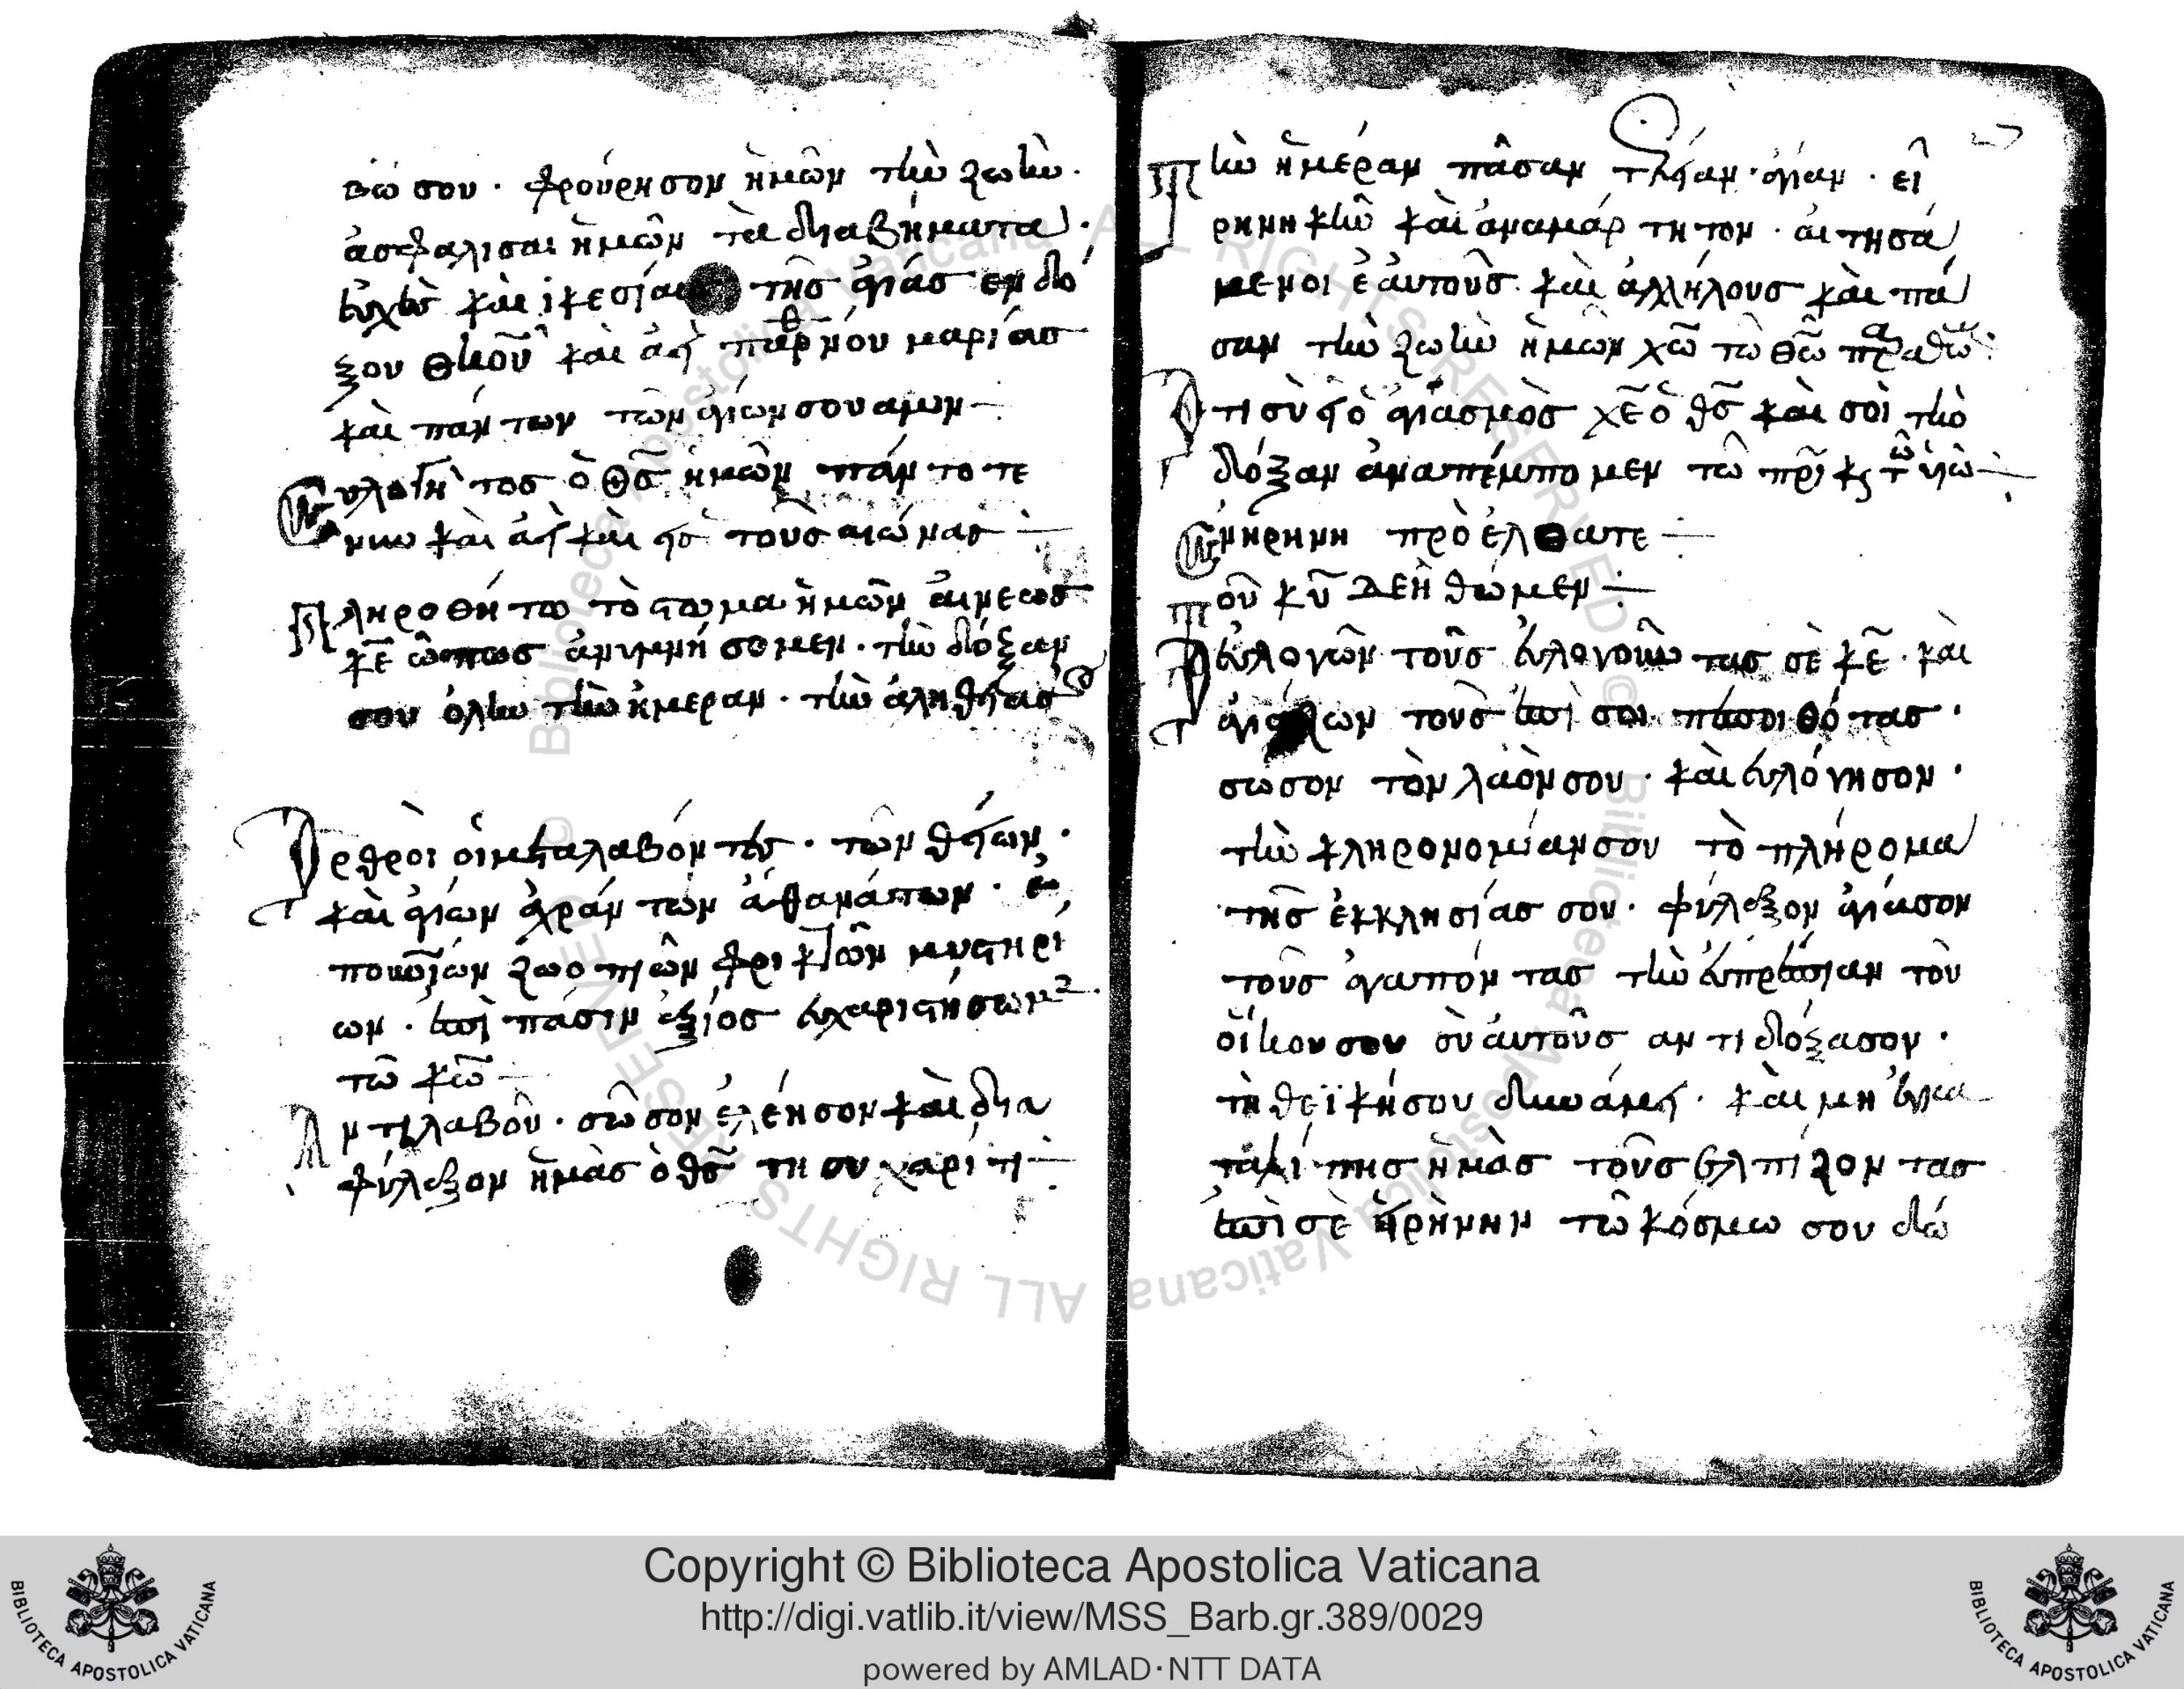 βῶ σου · φρούρησον ἡμῶν τὴν ζωὴν ·
ἀσφάλισαι ἡμῶν τὰ διαβήματα ·
εὐχὲς καὶ ἱκεσίαις τῆς ἁγίας ἐνδό
ξου θκου καὶ ἀεὶ παρθνου μαρίας
καὶ πάντων τῶν ἁγίων σου αμην
Ευλογητὸς ὁ θς ἡμῶν πάντοτε
νυν καὶ ἀεὶ καὶ εἰς τοὺς αἰώνας
Πληροθήτω τὸ στωμα ἡμῶν αἰνεσως
κε ὥπως ἀνυμνήσομεν · τὴν δόξαν
σου ὅλην τὴν ἡμεραν · τὴν
Ορθροι οἱ μεταλαβόντες · τῶν θείων ·
καὶ ἁγίων ἀχράντων ἀθανάτων ·
ζωοπιῶν φρικτῶν μυστηρί
ων · ἐπὶ πάσιν ἀξίος εὐχαριστήσωμεν
τῶ κω
Αντιλαβοῦ · σῶσον ἐλέησον καὶ δια
φύλαξον ἡμὰς ὁ θς τη σῦ χαρίτι
Την ἡμέραν πᾶσαν τελείαν · ἁγίαν · εἰ
ρηνηκὴν καὶ ἀναμάρτητον · αἰτησά
μενοι ἑαυτοὺς καὶ ἀλλήλους καὶ πά
σαν τὴν ζωὴν ἡμῶν χω τῶ θεῶ παραθω
Οτι σὺ εἶ ὁ ἁγιασμὸς χε ὁ θς καὶ σοὶ τὴν
δόξαν ἀναπέμπομεν τῶ πρι κς τῶ υἱῶ
Ενἠρηνη πρὸέλθατε
Τοῦ κυ δεηθώμεν
Ὁ εὐλογῶν τοῦς εὐλογοῦντας σὲ κε · καὶ
ἁγιάζων τοὺς ἐπὶ σοι πεποιθότας ·
σῶσον τὸν λαόν σου · καὶ εὐλόγησον ·
τὴν κληρονομίαν σου τὸ πλήρομα
τῆς ἐκκλησίας σου · φύλαξον ἁγίασον
τοὺς ἀγαπόντας τὴν εὐπρέπιαν τοῦ
οἴκου σου σὺ αὐτοὺς αντιδόξασον ·
τὴ θεϊκή σου δυνάμει · καὶ μη ἐγκα
ταλίπης ἡμὰς τοῦς ἐλπίζοντας
ἐπὶ σὲ εἰρὴνην τῶ κόσμω σου δώ
Copyright © Biblioteca Apostolica Vaticana
http://digi.vatlib.it/view/MSS_Barb.gr.389/0029
powered by AMLAD·NTT DATA
BIBLIOTECA APOSTOLICA VATICANA
BIBLIOTECA APOSTOLICA VATICANA